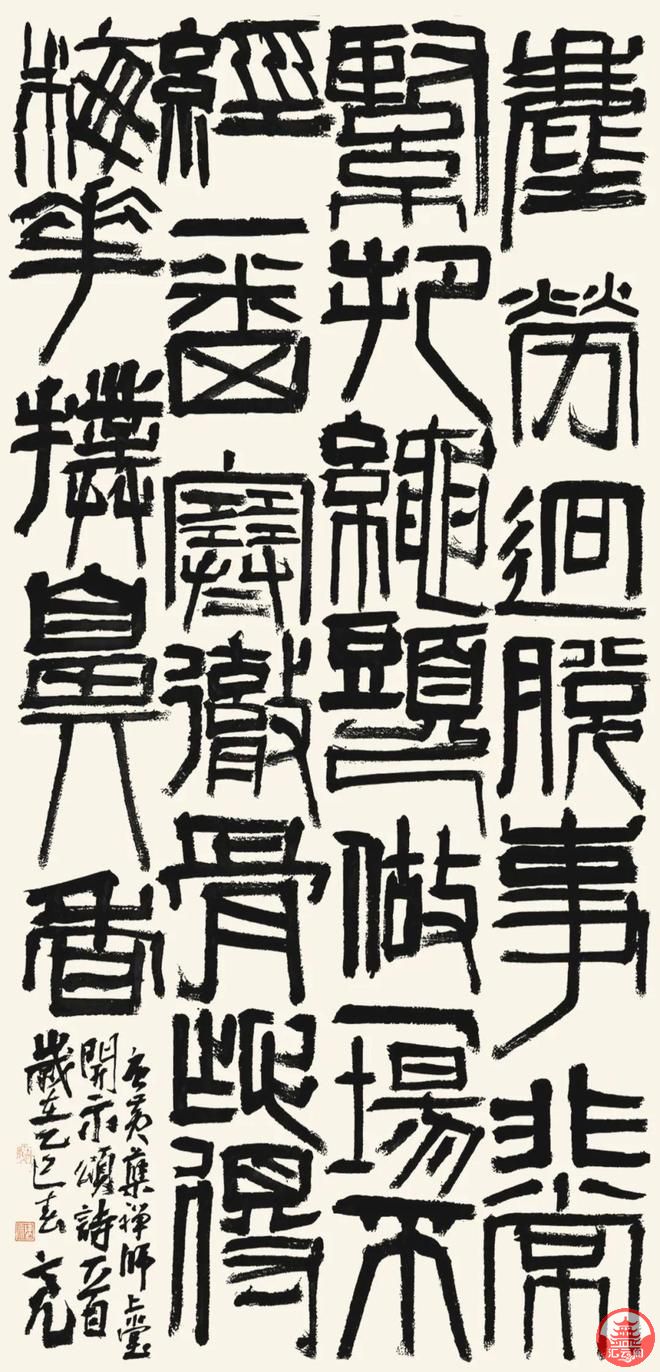 塵勞迥脫事非常
緊把繩頭做一場不
經一番寒徹骨得
梅花撲鼻香
唐黃蘗禪師上堂
開示頌詩一首
歲在乙巳春